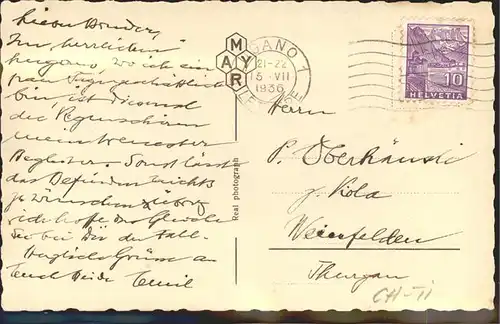 Im herrlichen
Lugano, wo ich ein
paar Tage geschäftlich
bin, ist diesmal
der Regenschirm
mein treuester
Begleiter. Sonst lässt
das Befinden nichts
zu wünschen übrig
ich hoffe das Gleiche
sei bei Dir der Fall.
Herzliche Grüsse an
Euch beide Emil
MAYR
Real photograph
LUGANO 1
21-22
15. VII
1936
10
HELVETIA
Herrn
P. Oberhänsli
z. Kola
Weinfelden
Thurgau
CH-TI